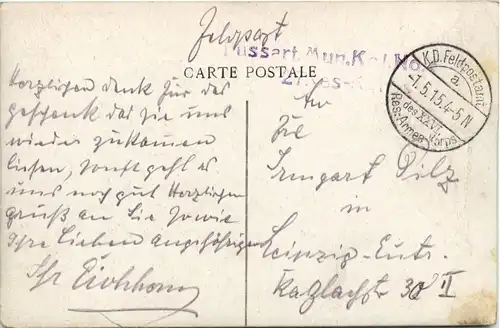 Feldpost
Fussart. Mun. Kol. No
CARTE POSTALE
K.D. Feldpostamt
a.
-7.5.15.4-5 N
des XXVII.
Res. Armee-Korps
Herzlichen dank für das
geschenk das Sie uns
wieder zukomen
liesen, sonst geht es
uns noch gut Herzlichen
gruß an Sie sowie
Ihre Lieben angehörigen
Ihr Eichhorn
An
Irmgart Pilz
in
Leipzig-Eutr.
30 II